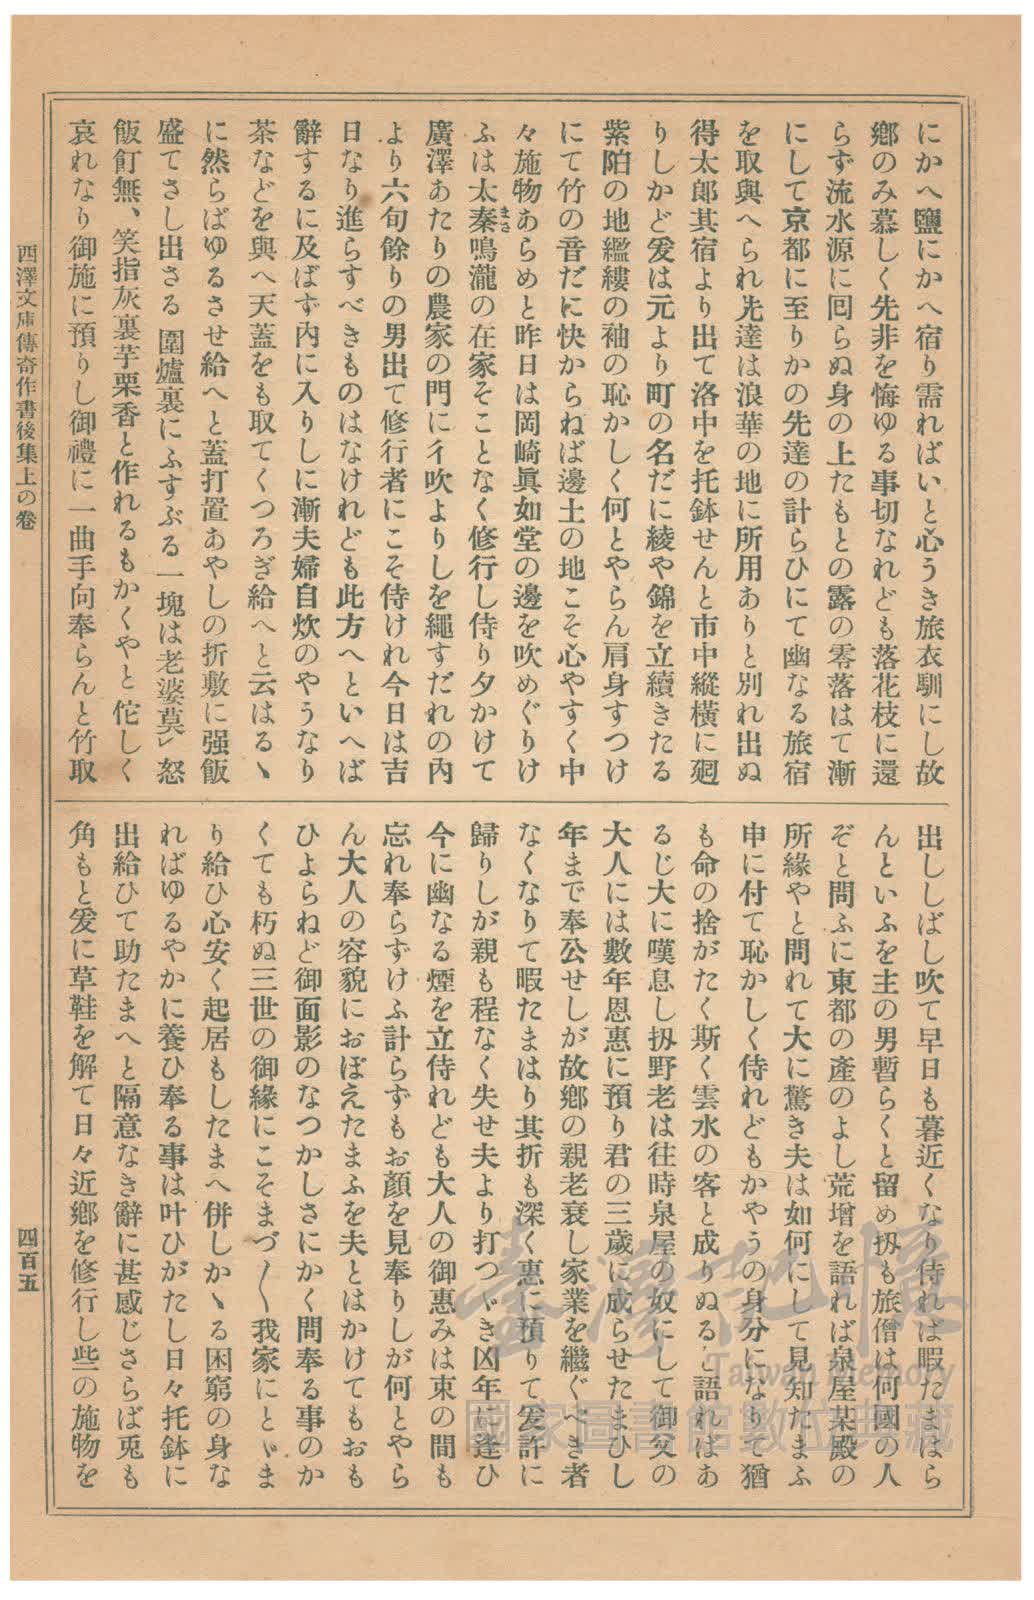 にかへ鹽にかへ宿り需ればいと心うき旅衣馴にし故
鄕のみ慕しく先非を悔ゆる事切なれども落花枝に還
らず流水源に囘らぬ身の上たもとの露の零落はて漸
にして京都に至りかの先達の計らひにて幽なる旅宿
を取與へられ先達は浪華の地に所用ありと別れ出ぬ
得太郎其宿より出て洛中を托鉢せんと市中縱橫に廻
りしかど爰は元より町の名だに綾や錦を立續きたる
紫陌の地繿縷の袖の恥かしく何とやらん肩身すつけ
にて竹の音だに快からねば邊土の地こそ心やすく中
々施物あらめと昨日は岡崎眞如堂の邊を吹めぐりけ
ふは太秦鳴瀧の在家そことなく修行し侍り夕かけて
廣澤あたりの農家の門に彳吹よりしを繩すだれの內
より六旬餘りの男出て修行者にこそ侍けれ今日は吉
日なり進らすべきものはなけれども此方へといへば
辭するに及ばず內に入りしに漸夫婦自炊のやうなり
茶などを與へ天蓋をも取てくつろぎ給へと云はるゝ
に然らばゆるさせ給へと蓋打置あやしの折敷に强飯
盛てさし出さる圍爐裏にふすぶる一塊は老婆莫レ怒
飯飣無、笑指灰裏芋栗香と作れるもかくやと佗しく
哀れなり御施に預りし御禮に一曲手向奉らんと竹取
出ししばし吹て早日も暮近くなり侍れば暇たまはら
んといふを主の男暫らくと留め扨も旅僧は何國の人
ぞと問ふに東都の產のよし荒增を語れば泉屋某殿の
所緣やと問れて大に驚き夫は如何にして見知たまふ
申に付て恥かしく侍れどもかやうの身分になりて猶
も命の捨がたく斯く雲水の客と成りぬると語ればあ
るじ大に嘆息し扨野老は往時泉屋の奴にして御父の
大人には數年恩惠に預り君の三歲に成らせたまひし
年まで奉公せしが故鄕の親老衰し家業を繼ぐべき者
なくなりて暇たまはり其折も深く惠に預りて爰許に
歸りしが親も程なく失せ夫より打つゞき凶年に逢ひ
今に幽なる煙を立侍れども大人の御惠みは束の間も
忘れ奉らずけふ計らずもお顏を見奉りしが何とやら
ん大人の容貌におぼえたまふを夫とはかけてもおも
ひよらねど御面影のなつかしさにかく問奉る事のか
くても朽ぬ三世の御緣にこそまづ〱我家にとゞま
り給ひ心安く起居もしたまへ併しかゝる困窮の身な
ればゆるやかに養ひ奉る事は叶ひがたし日々托鉢に
出給ひて助たまへと隔意なき辭に甚感じさらば兎も
角もと爰に草鞋を解て日々近鄕を修行し些の施物を
西澤文庫傳奇作書後集上の卷
四百五
臺灣記憶
Taiwan Memory
國家圖書館數位典藏